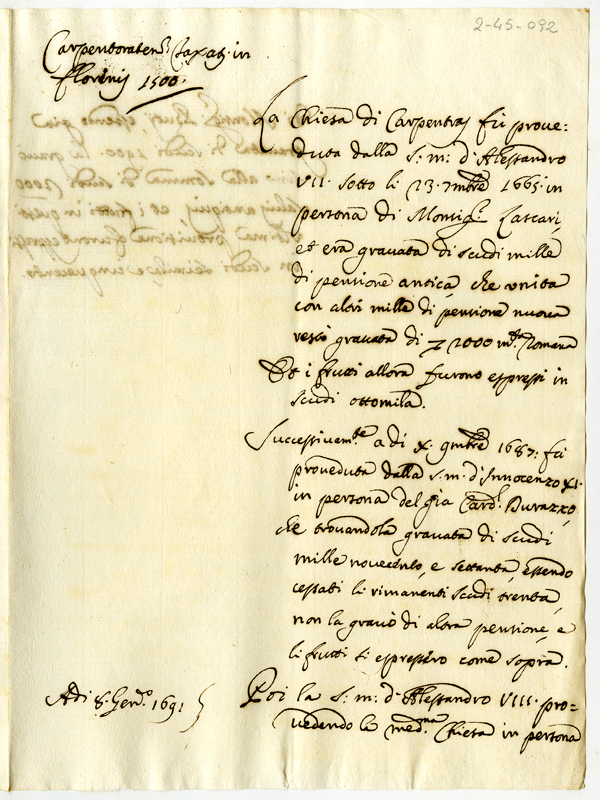 2-45-092
Carpentoraten: Taxat: in
florenis 1500.
La Chiesa di Carpentras fù prove:
duta dalla S: m: d'Alessandro
VII. sotto li 23. 7mbre 1665. in
persona di Monsig.r Lascari,
et era gravata di scudi mille
di pensione antica, che unita
con altri mille di pensione nuova
restò gravata di 2000 m.ta Romana
Et i frutti allora furono espressi in
scudi ottomila.
Successivam.te a di X. 9mbre 1687: fù
proveduta dalla S. m. d'Innocenzo XI.
in persona del già Card.l Durazzo,
che trovandola gravata di scudi
mille novecento, e settanta, essendo
cessati li rimanenti scudi trenta,
non la gravò di altra pensione, e
li frutti si espressero come sopra.
Adi 8. Gen.o 1691
Poi la S: m: d'Alessandro VIII. pro=
vedendo la med.ma Chiesa in persona